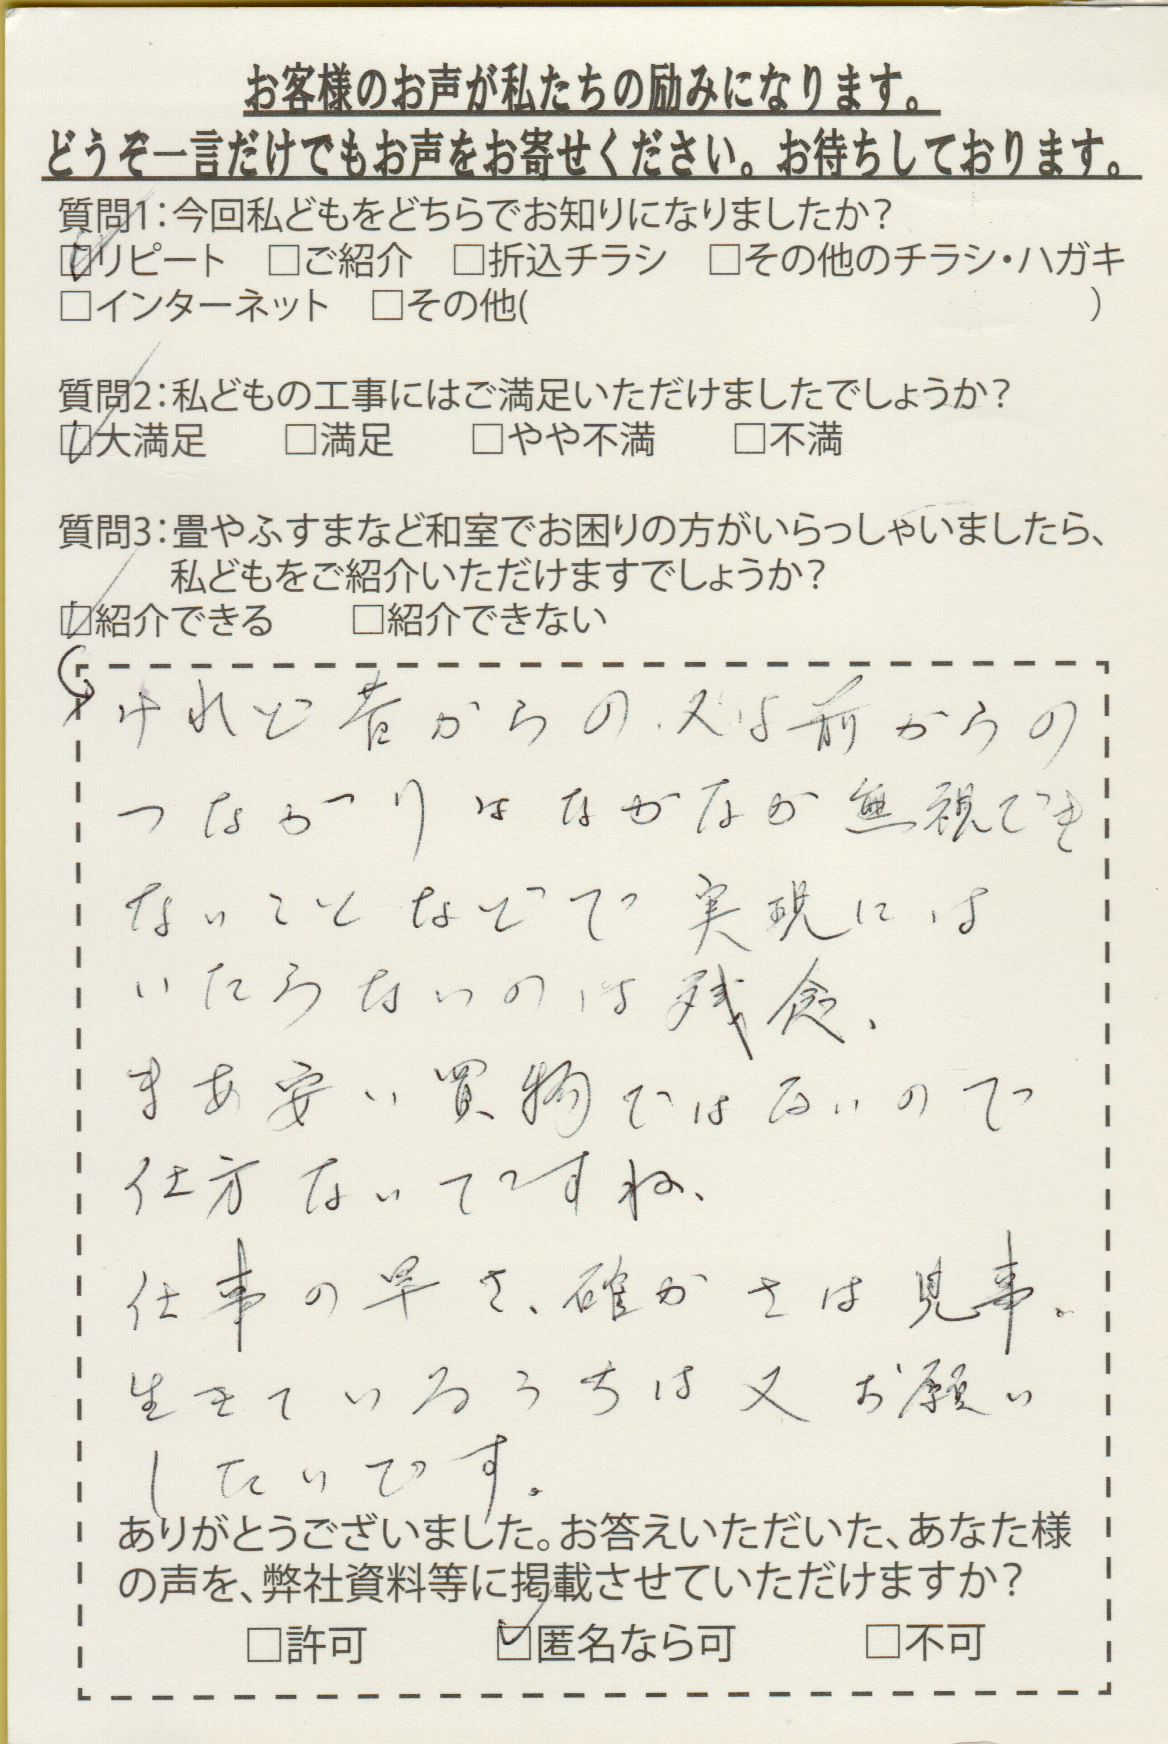 お客様のお声が私たちの励みになります。
どうぞ一言だけでもお声をお寄せください。お待ちしております。
質問1：今回私どもをどちらでお知りになりましたか？
☑リピート　□ご紹介　□折込チラシ　□その他のチラシ・ハガキ
□インターネット　□その他(　　　　　)
質問2：私どもの工事にはご満足いただけましたでしょうか？
☑大満足　□満足　□やや不満　□不満
質問3：畳やふすまなど和室でお困りの方がいらっしゃいましたら、
私どもをご紹介いただけますでしょうか？
☑紹介できる　□紹介できない
けれど昔からの、又は前からの
つながりはなかなか無視でき
ないことなどで実現には
いたらないのは残念、
まあ安い買物ではないので
仕方ないですね、
仕事の早さ、確かさは見事。
生きているうちは又お願い
したいです。
ありがとうございました。お答えいただいた、あなた様
の声を、弊社資料等に掲載させていただけますか？
□許可　☑匿名なら可　□不可